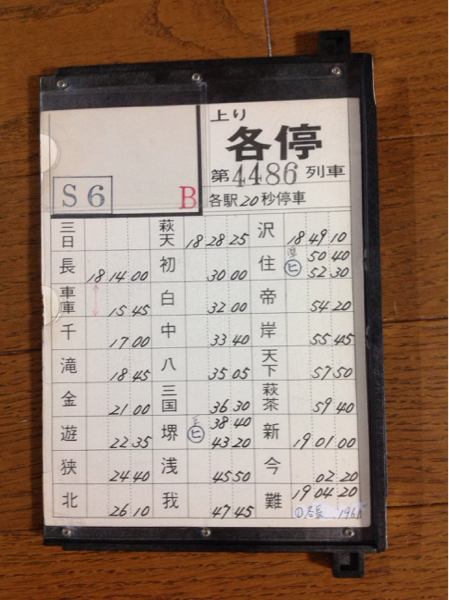 上り
各停
第4486列車
各駅20秒停車
S6 B
三日
長 18 14 00
車庫 15 45
千 17 00
滝 18 45
金 21 00
遊 22 35
狭 24 40
北 26 10
萩天 18 28 25
初 30 00
白 32 00
中 33 40
八 35 05
三国 36 30
堺 ヒ 38 40
43 20
浅 45 50
我 47 45
沢 18 49 10
住 ヒ 50 40
52 30
帝 54 20
岸 55 45
天下 57 50
萩茶 59 40
新 19 01 00
今 02 20
難 19 04 20